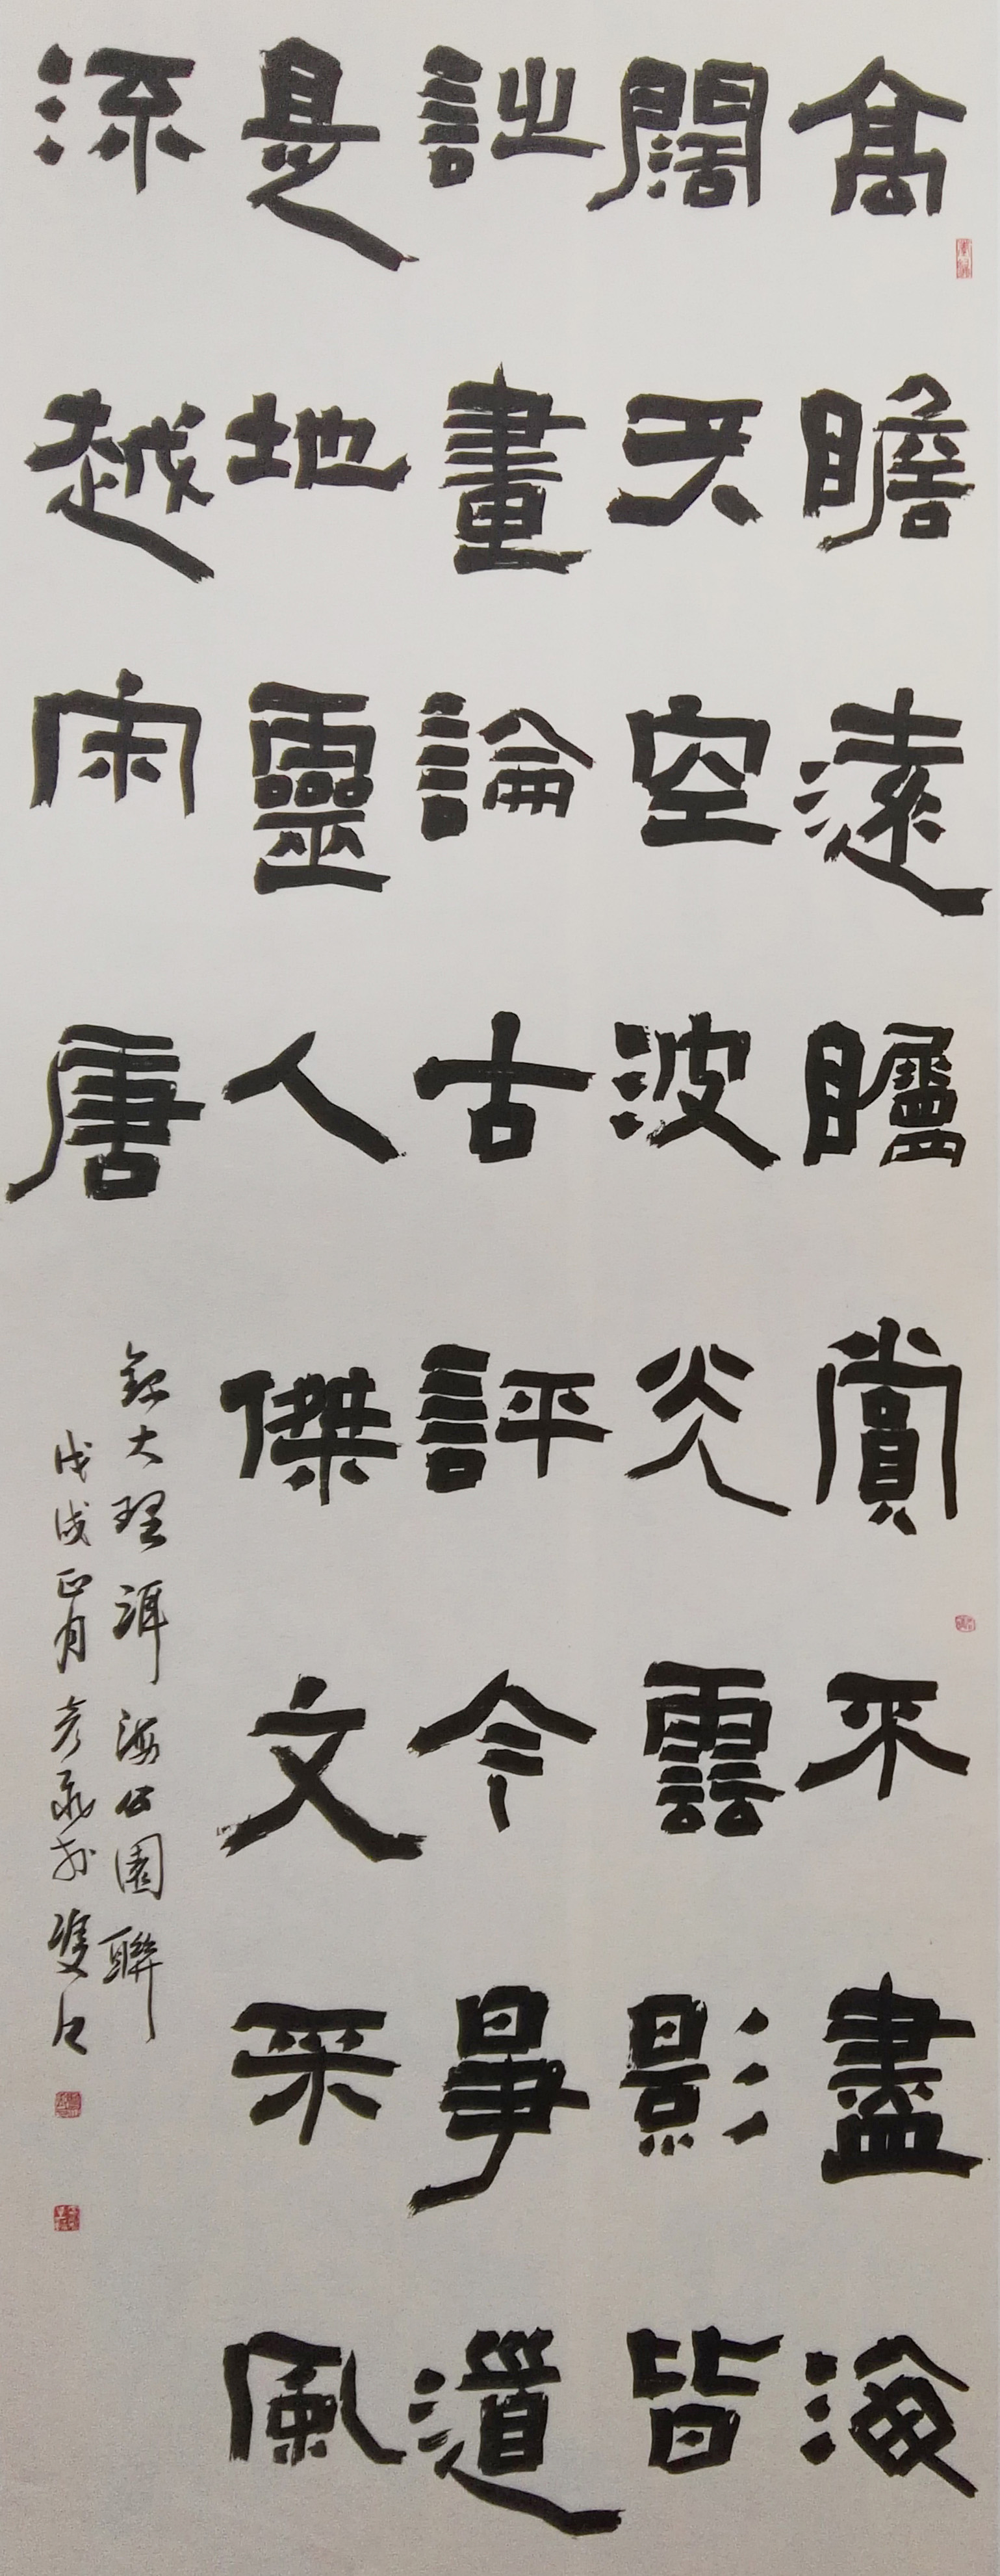 高瞻遠矚賞不盡海
闊天空波光雲影皆
詩畫論古評今事道
是地靈人傑文采風
流越宋唐
錄大理洱海公園聯
戊戌正月彦